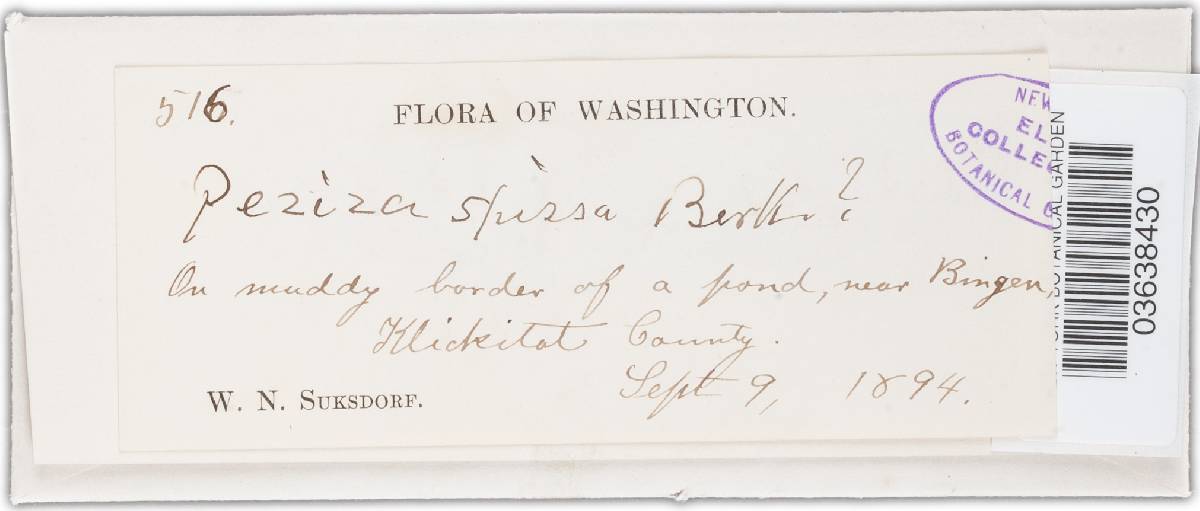 516.
FLORA OF WASHINGTON.
Peziza spissa Berk. ?
On muddy border of a pond, near Bingen,
Klickitat County.
Sept 9, 1894.
W. N. SUKSDORF.
NEW
COLLE
BOTANICAL
BOTANICAL GARDEN
03638430